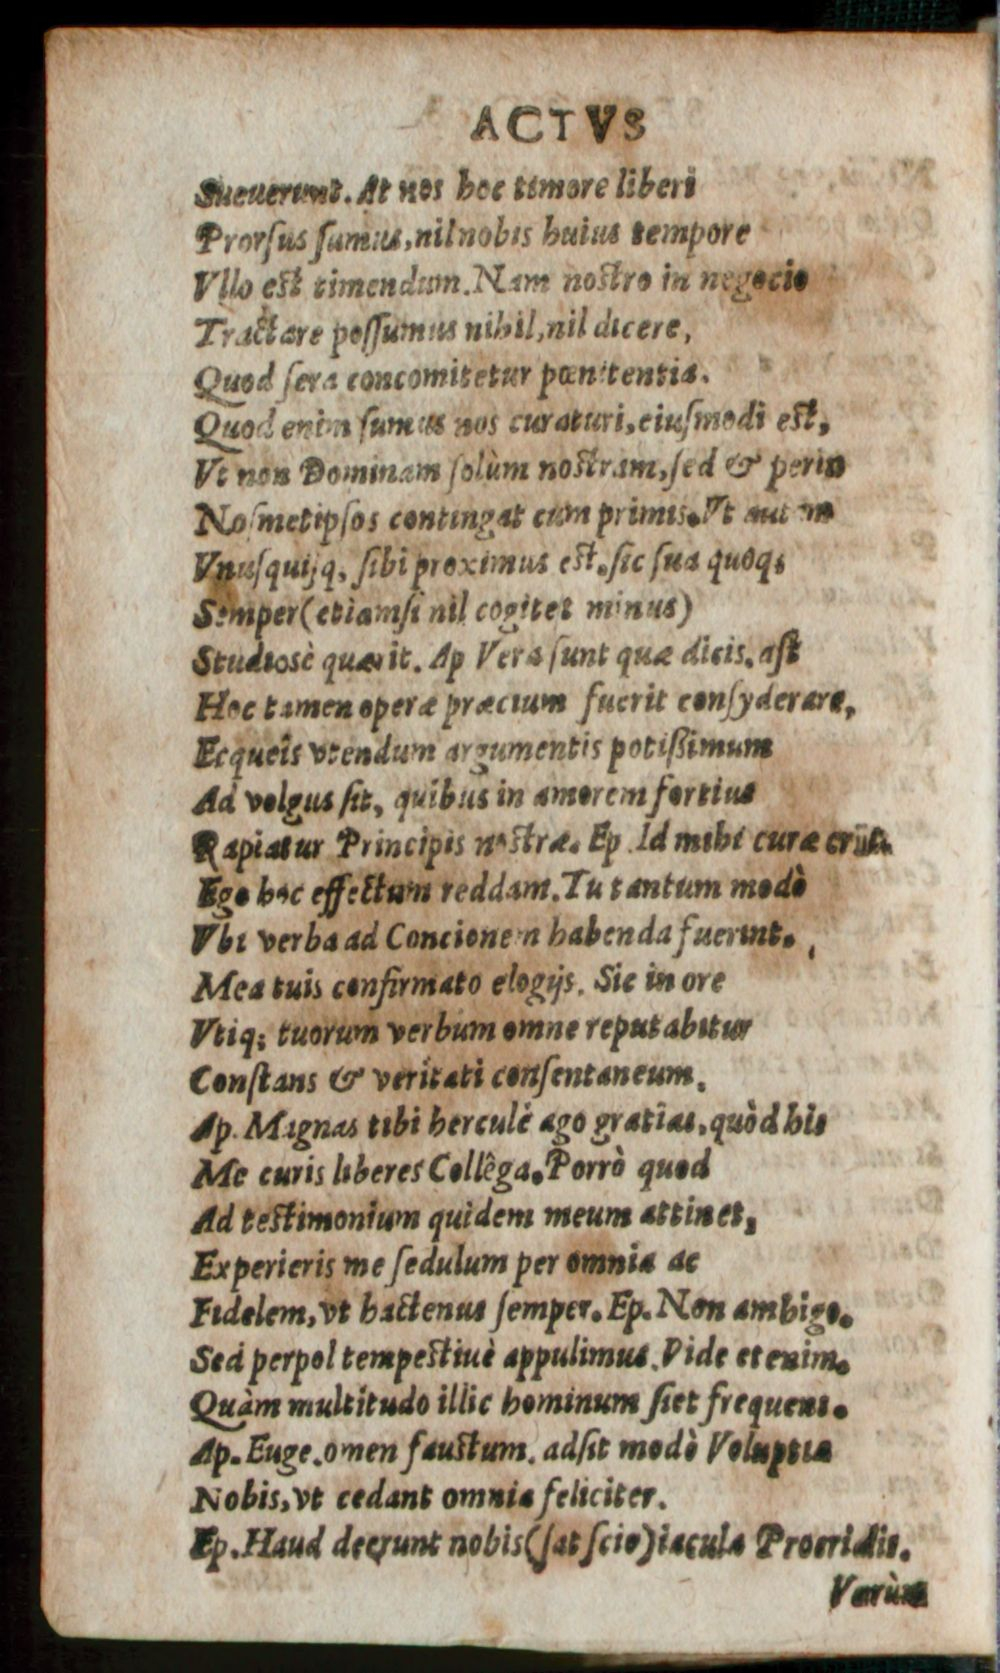 ACTVS
Sueuerunt. At nos hoc timore liberi
Prorſus ſumus, nil nobis huius tempore
Vllo eſt timendum. Nam noſtro in negocio
Tractare poſſumus nihil, nil dicere,
Quod ſera concomitetur pœnitentia.
Quod enim ſumus nos curaturi, eiuſmodi eſt,
Vt non Dominam ſolùm noſtram, ſed & perin
Noſmetipſos contingat cum primis. Vt autem
Vnuſquiſq, ſibi proximus eſt. ſic ſua quoq;
Semper (etiamſi nil cogitet minus)
Studiosè quærit. Ap Vera ſunt quæ dicis. aſt
Hoc tamen operæ præcium fuerit conſyderare,
Ecqueîs vtendum argumentis potiſſimum
Ad volgus ſit, quibus in amorem fortius
Rapiatur Principis noſtræ. Ep. Id mihi curæ erit.
Ego hoc effectum reddam. Tu tantum modò
Vbi verba ad Concionem habenda fuerint.
Mea tuis confirmato elogijs. Sic in ore
Vtiq; tuorum verbum omne reputabitur
Conſtans & veritati conſentaneum.
Ap. Magnas tibi herculè ago gratias, quòd his
Me curis liberes Collêga. Porrò quod
Ad teſtimonium quidem meum attinet,
Experieris me ſedulum per omnia ac
Fidelem, vt hactenus ſemper. Ep. Non ambigo.
Sed perpol tempeſtiuè appulimus. Vide etenim.
Quàm multitudo illic hominum ſiet frequens.
Ap. Euge. omen fauſtum. adſit modò Voluptia
Nobis, vt cedant omnia feliciter.
Ep. Haud deerunt nobis (ſat ſcio) iacula Procridis.
Verùm